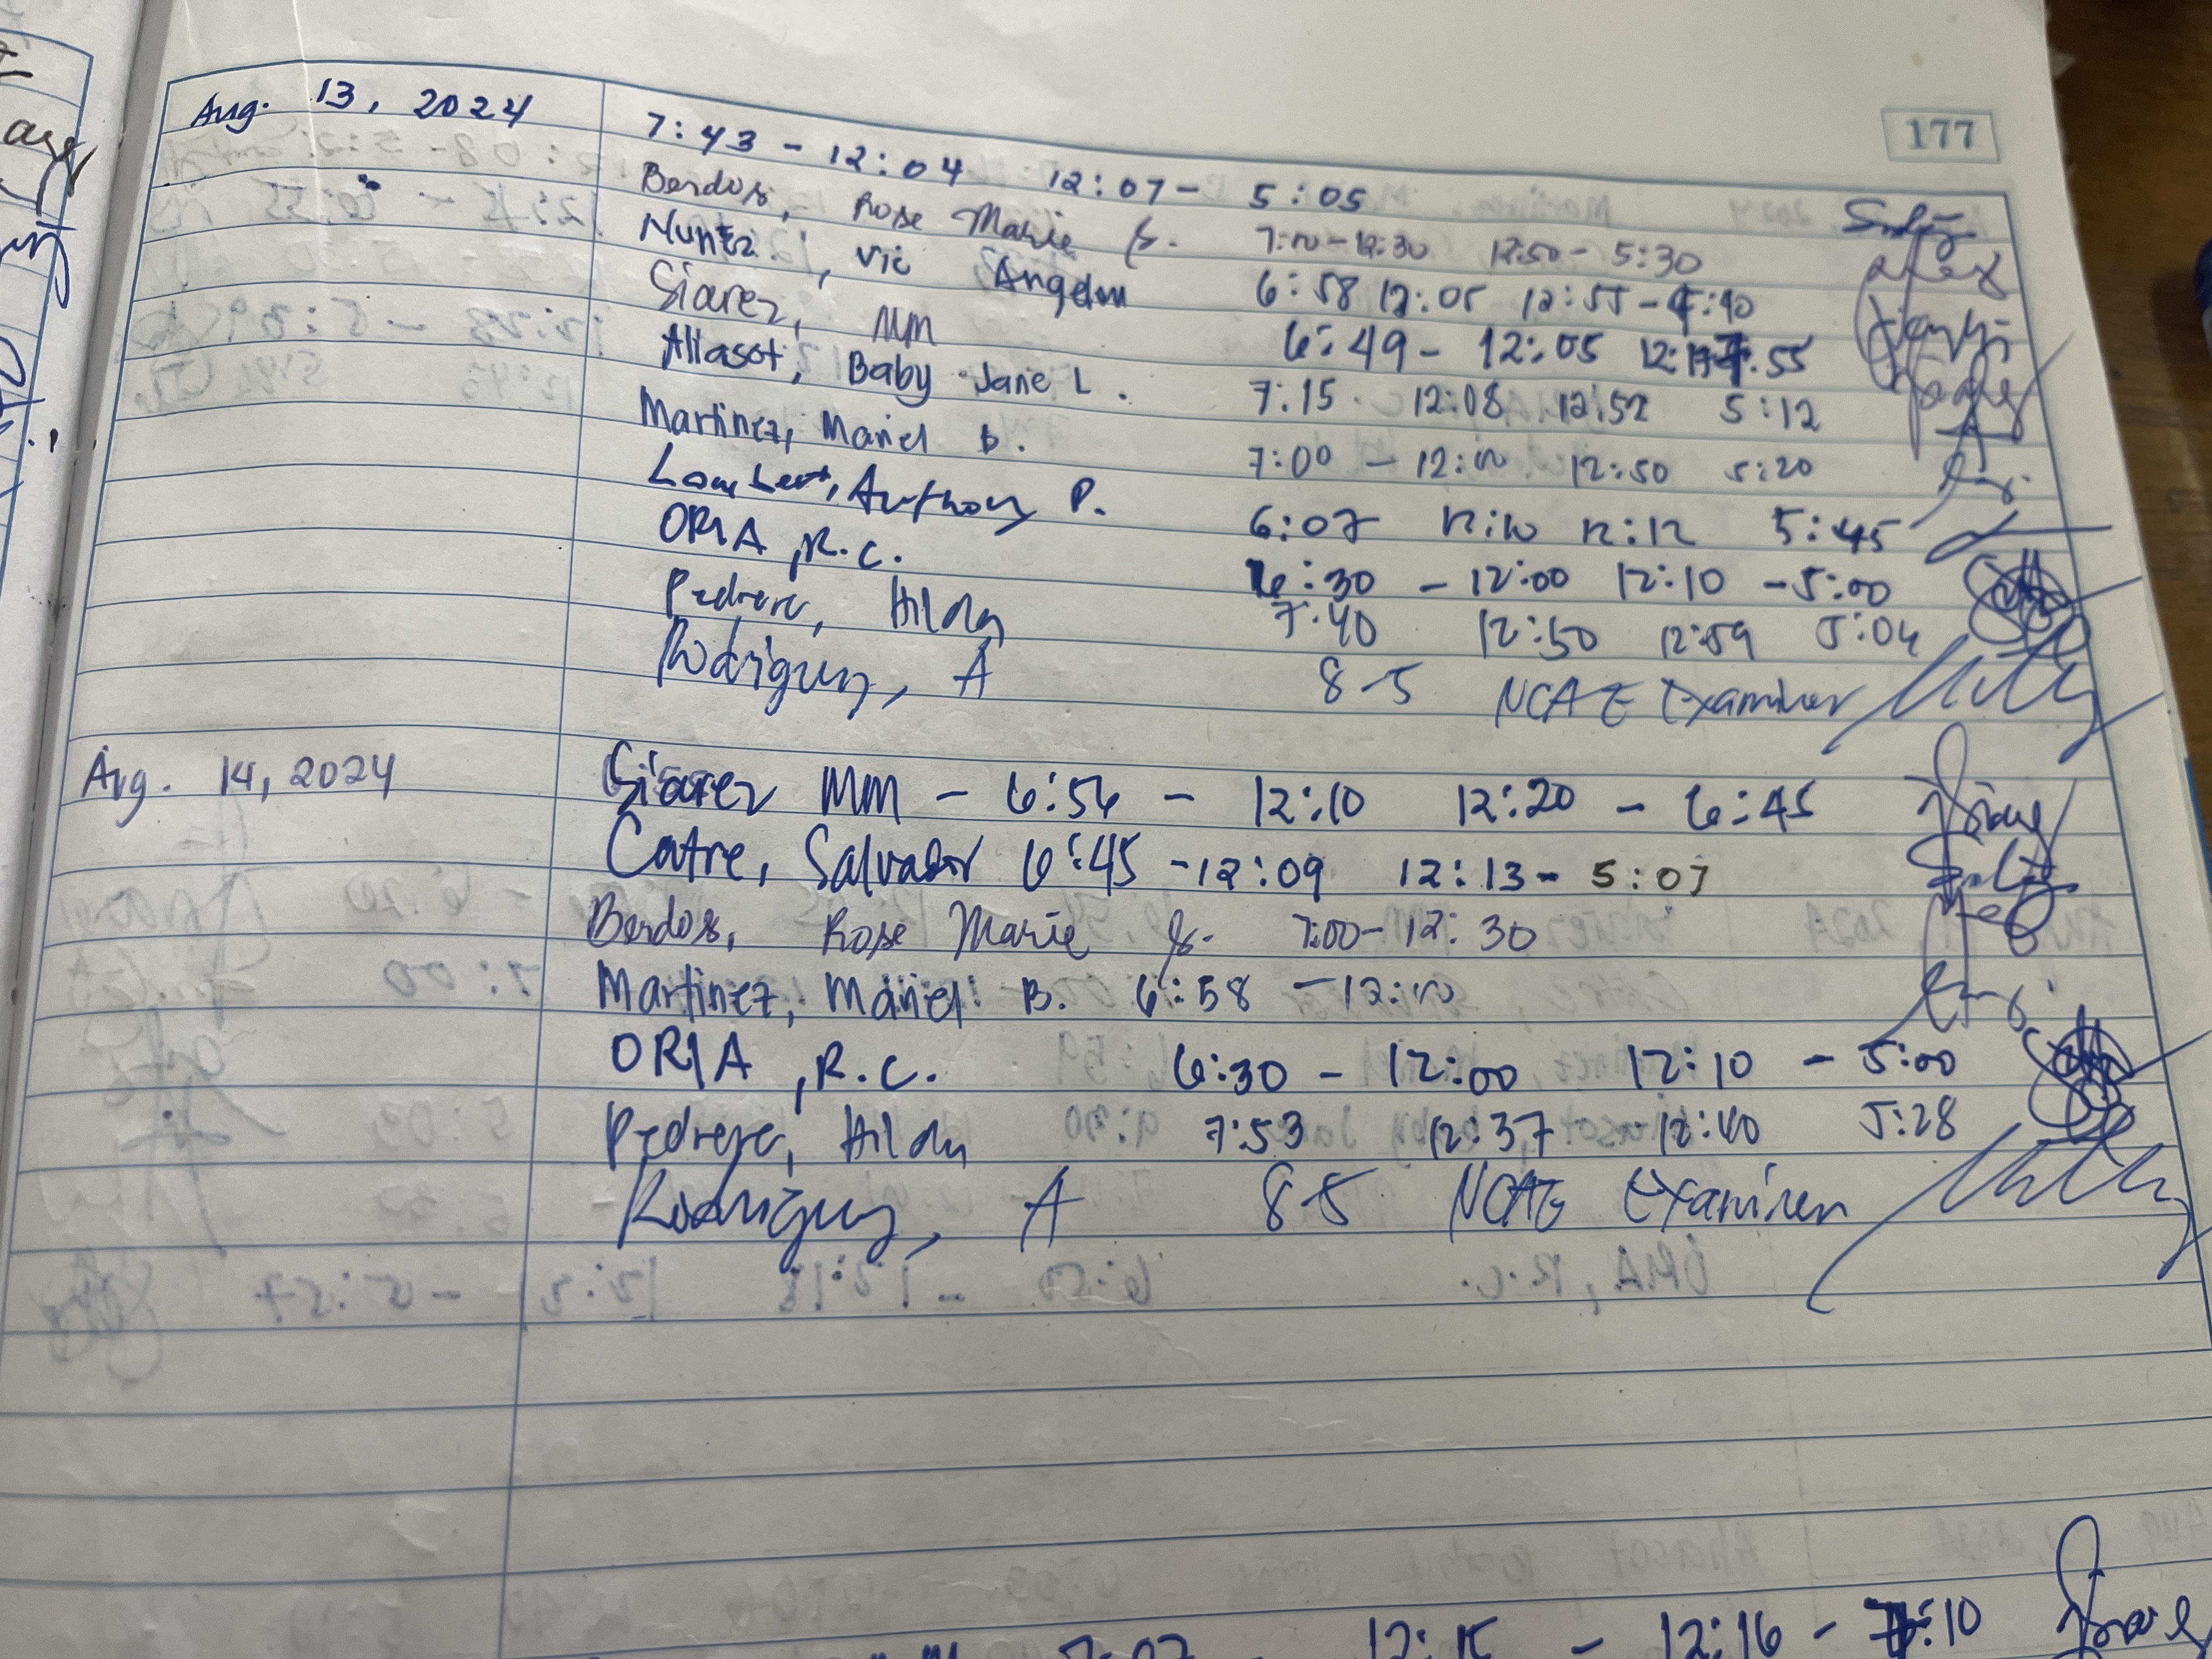 177
Aug. 13, 2024 7:43 - 12:04 12:07 - 5:05
Berdos, Rose Marie 7:00-12:30 12:50 - 5:30
Nuñez, Vic Angelou 6:58 12:05 12:55 - :40
Siarez, MM 6:49 - 12:05 12: :55
Aliasot, Baby Jane L. 7:15 12:08 12:52 5:12
Martinez, Mariel B. 7:00 - 12:00 12:50 5:20
Lambert, Anthony P. 6:07 12:10 12:12 5:45
ORIA, R.C. 6:30 - 12:00 12:10 - 5:00
Pedrera, Hilda 7:40 12:50 12:59 5:04
Rodriguez, A 8-5 NCAE Examiner
Aug. 14, 2024 Siarez MM - 6:56 - 12:10 12:20 - 6:45
Catre, Salvador 6:45 - 12:09 12:13 - 5:07
Berdos, Rose Marie 7:00 - 12:30
Martinez, Mariel B. 6:58 - 12:00
ORIA, R.C. 6:30 - 12:00 12:10 - 5:00
Pedrera, Hilda 7:53 12:37 12:40 5:28
Rodriguez, A 8-5 NCAE Examiner
7:07 12:15 - 12:16 - :10